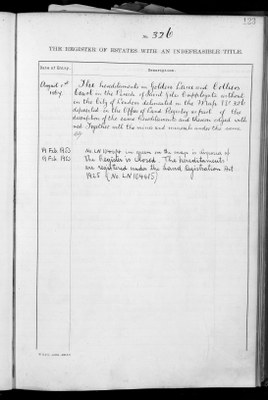 No. 326
THE REGISTER OF ESTATES WITH AN INDEFEASIBLE TITLE.
Date of Entry. Description.
August 1st 1864. The hereditaments in Golden Lane and Cotters
Court in the Parish of Saint Giles Cripplegate without
in the City of London delineated in the Map No. 326
deposited in the Office of Land Registry as part of the
description of the same hereditaments and thereon edged with
red. Together with the mines and minerals under the same
19 Feb 1953 No. LN 104690 in green on the map is
19 Feb 1953 the Register is closed. The hereditaments
are registered under the Land Registration Act
1925 (No. LN 104415)